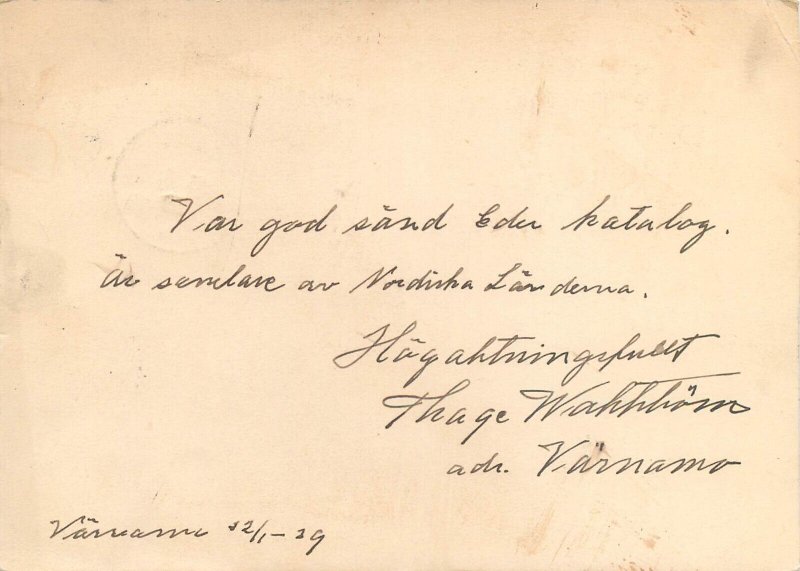 Var god sänd Eder katalog.
Är samlare av Nordiska Länderna.
Högaktningsfullt
Thage
adr. Värnamo
Värnamo /1-29